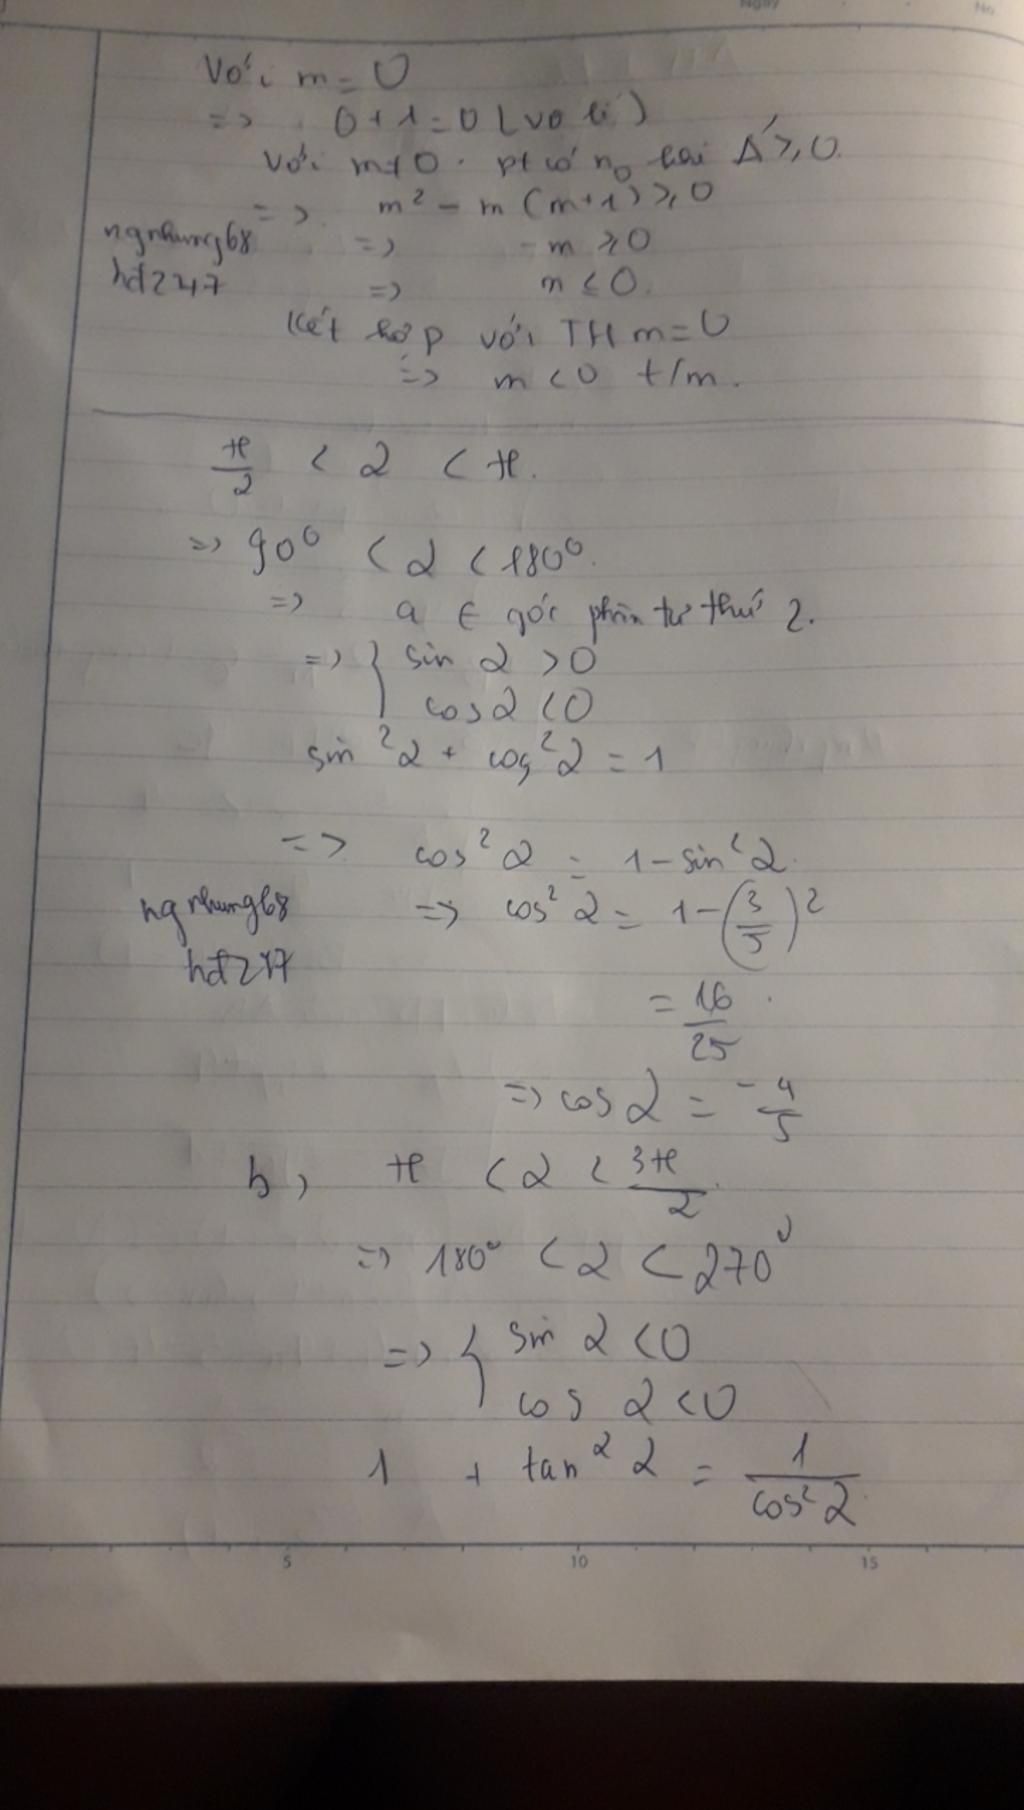 Ngày No.
Với m = 0
=> 0 + 1 = 0 (vô lí)
Với m ≠ 0. pt có n₀ khi Δ' ≥ 0.
=> m² - m (m+1) ≥ 0
ngnhung68 => - m ≥ 0
hđ247 => m ≤ 0.
Kết hợp với TH m = 0
=> m < 0 t/m.
π/2 < α < π.
=> 90⁰ < α < 180⁰.
=> a ∈ góc phần tư thứ 2.
=> { sin α > 0
cos α < 0
sin² α + cos² α = 1
=> cos² α = 1 - sin² α.
ngnhung68 => cos² α = 1 - (3/5)²
hđ247
= 16/25
=> cos α = - 4/5
b, π < α < 3π/2
=> 180⁰ < α < 270⁰
=> { sin α < 0
cos α < 0
1 + tan² α = 1/cos² α
5 10 15